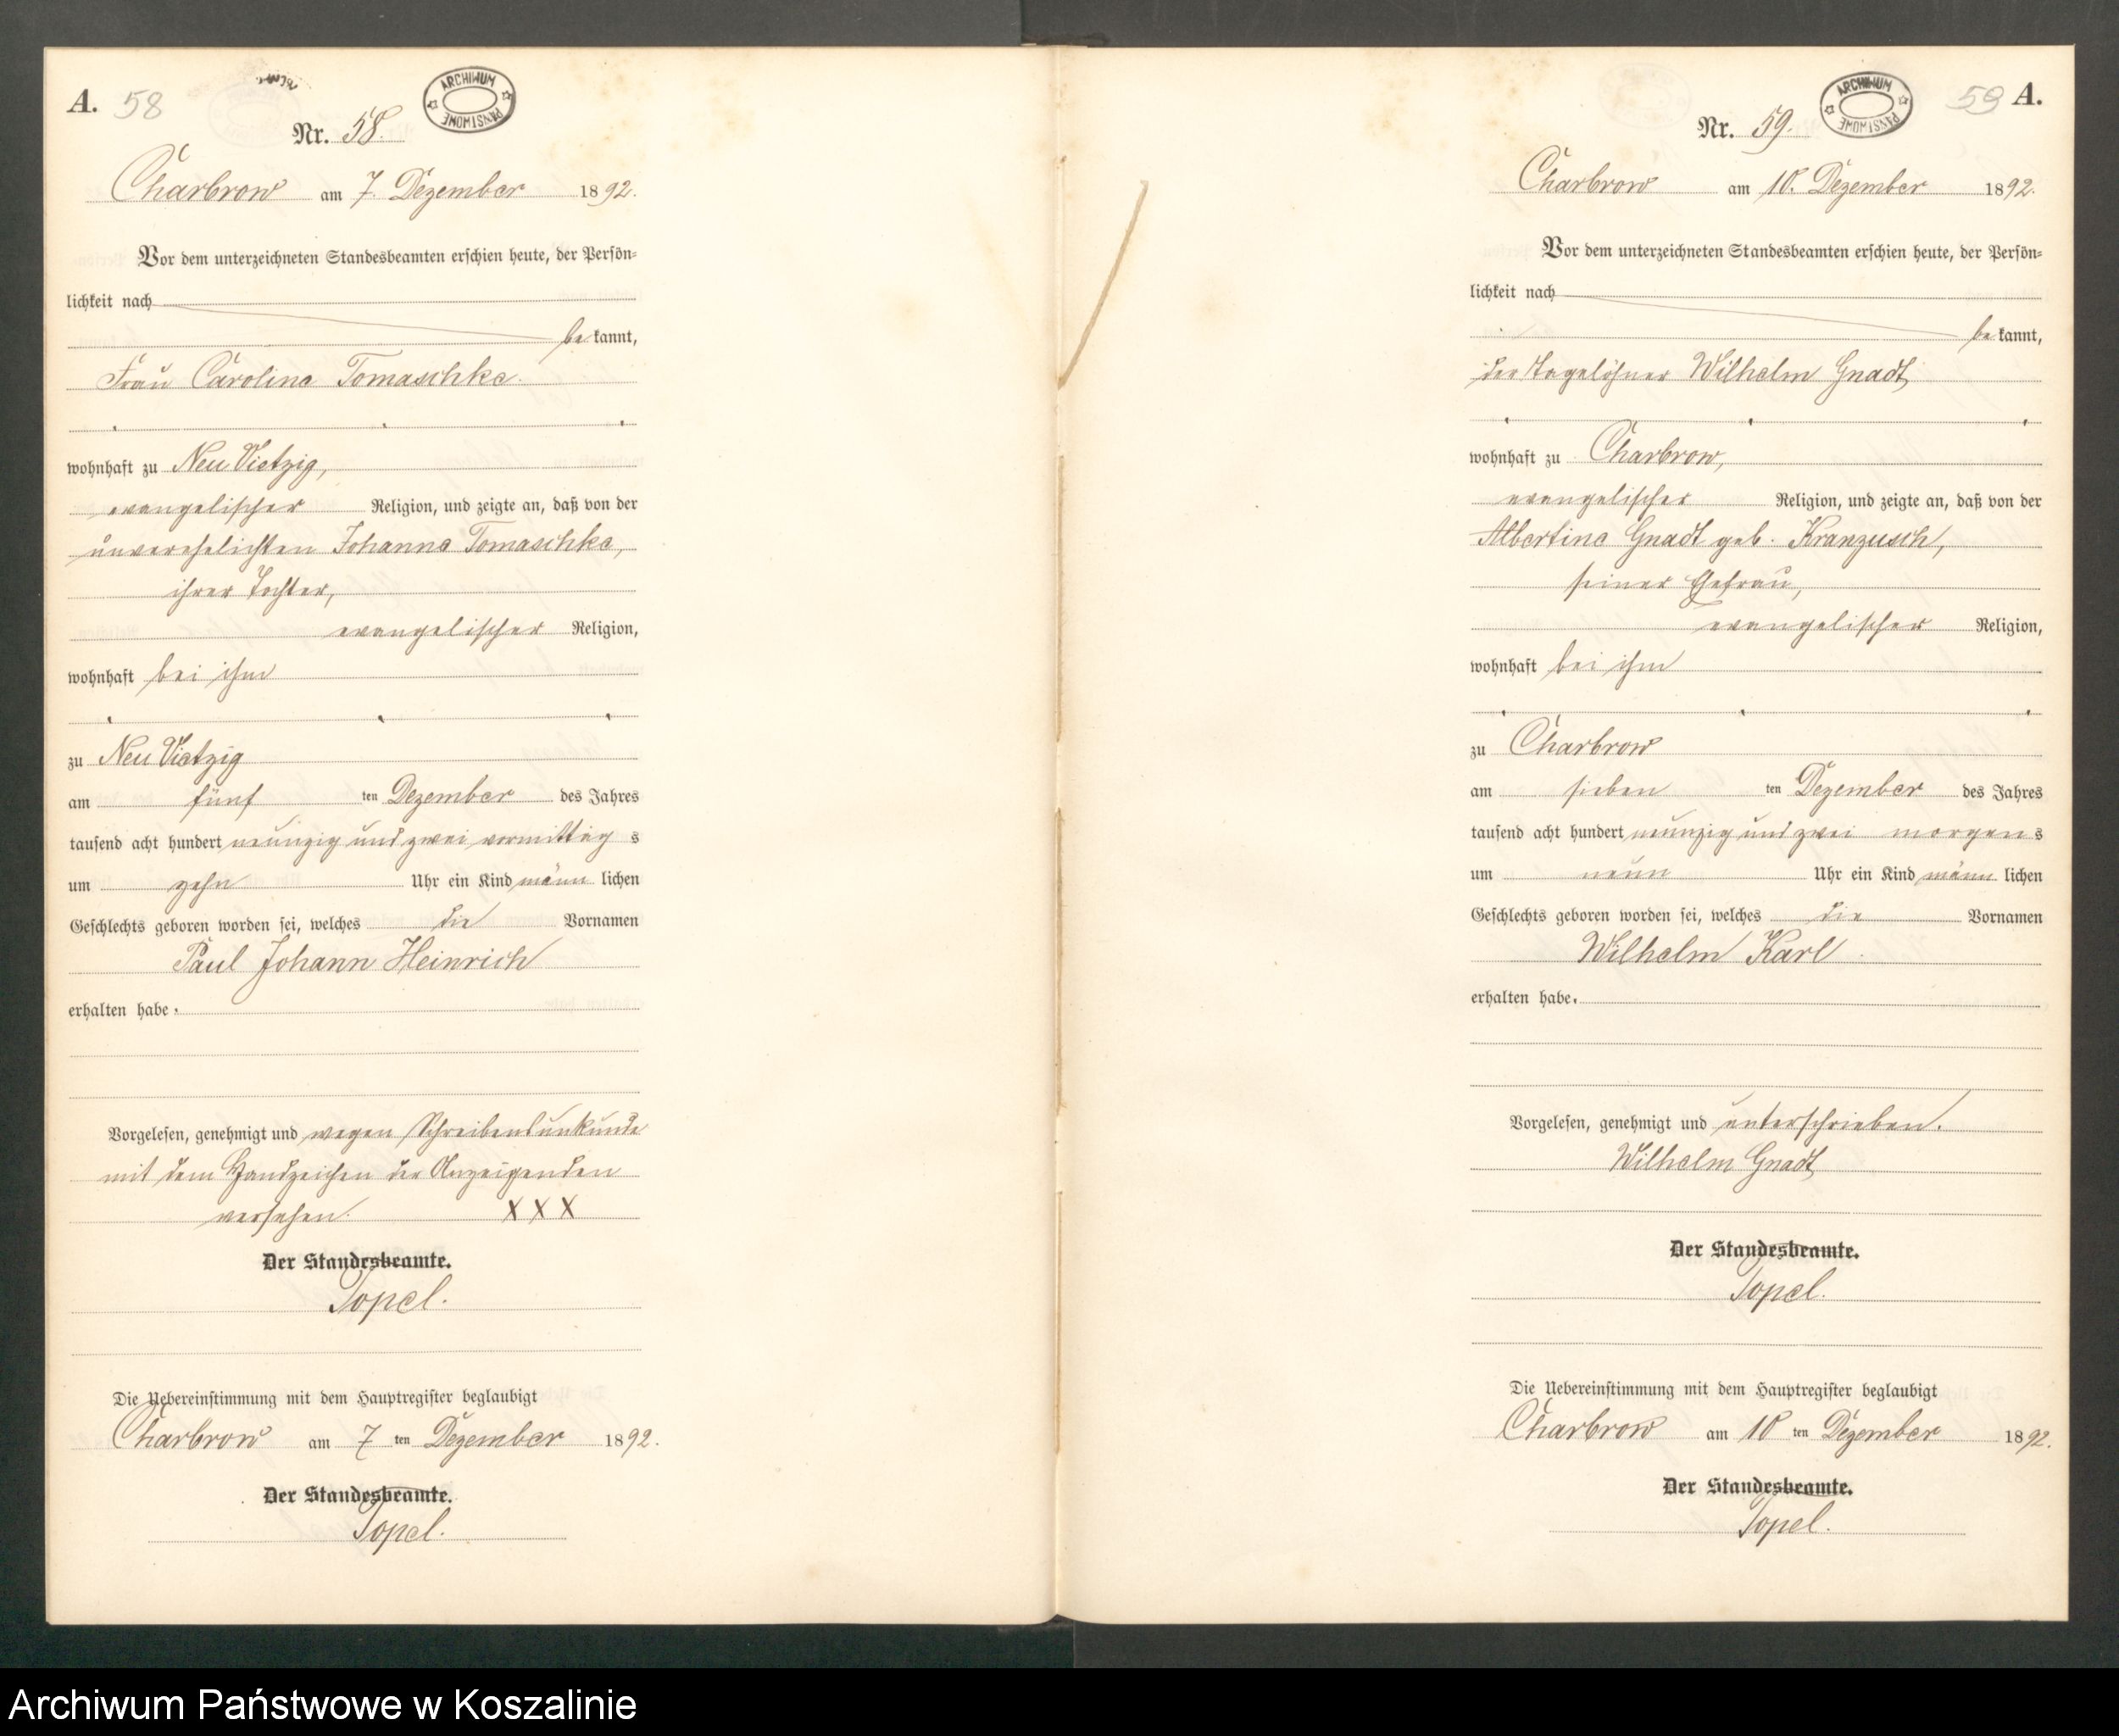 A. 58
ARCHIWUM PAŃSTWOWE
Nr. 58.
Charbrow am 7. Dezember 1892.
Vor dem unterzeichneten Standesbeamten erschien heute, der Persön-
lichkeit nach
be kannt,
Frau Caroline Tomaschke.
wohnhaft zu Neu Vietzig,
evangelischer Religion, und zeigte an, daß von der
unverehelichten Johanne Tomaschke,
ihrer Tochter,
evangelischer Religion,
wohnhaft bei ihm
zu Neu Vietzig
am fünf ten Dezember des Jahres
tausend acht hundert neunzig und zwei vormittag s
um zehn Uhr ein Kind männ lichen
Geschlechts geboren worden sei, welches die Vornamen
Paul Johann Heinrich
erhalten habe.
Vorgelesen, genehmigt und wegen Schreibensunkunde
mit dem Handzeichen der Anzeigenden
versehen. XXX
Der Standesbeamte.
Topel.
Die Uebereinstimmung mit dem Hauptregister beglaubigt
Charbrow am 7 ten Dezember 1892.
Der Standesbeamte.
Topel.
59 A.
ARCHIWUM PAŃSTWOWE
Nr. 59.
Charbrow am 10. Dezember 1892.
Vor dem unterzeichneten Standesbeamten erschien heute, der Persön-
lichkeit nach
be kannt,
der Tagelöhner Wilhelm Gnadt,
wohnhaft zu Charbrow,
evangelischer Religion, und zeigte an, daß von der
Albertine Gnadt geb. Kranzusch,
seiner Ehefrau,
evangelischer Religion,
wohnhaft bei ihm
zu Charbrow
am sieben ten Dezember des Jahres
tausend acht hundert neunzig und zwei morgen s
um neun Uhr ein Kind männ lichen
Geschlechts geboren worden sei, welches die Vornamen
Wilhelm Karl
erhalten habe.
Vorgelesen, genehmigt und unterschrieben.
Wilhelm Gnadt
Der Standesbeamte.
Topel.
Die Uebereinstimmung mit dem Hauptregister beglaubigt
Charbrow am 10 ten Dezember 1892.
Der Standesbeamte.
Topel.
Archiwum Państwowe w Koszalinie